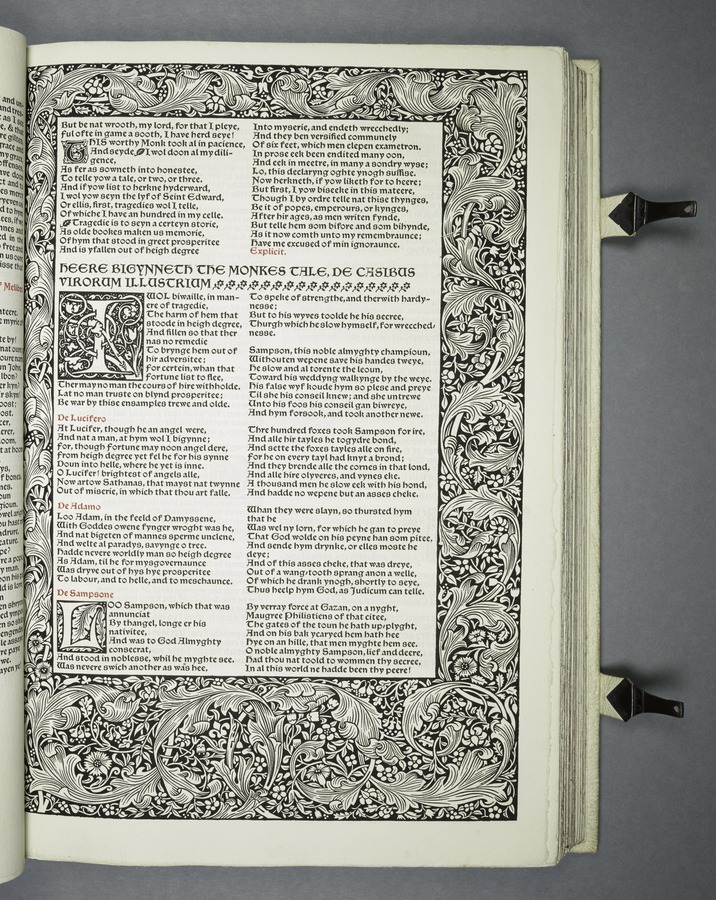 But be nat wrooth, my lord, for that I pleye,
Ful ofte in game a sooth, I have herd seye!
THIS worthy Monk took al in pacience,
And seyde, I wol doon al my dili-
gence,
As fer as sowneth into honestee,
To telle yow a tale, or two, or three.
And if yow list to herkne hyderward,
I wol yow seyn the lyf of Seint Edward,
Or ellis, first, tragedies wol I telle,
Of whiche I have an hundred in my celle.
Tragedie is to seyn a certeyn storie,
As olde bookes maken us memorie,
Of hym that stood in greet prosperitee
And is yfallen out of heigh degree
Into myserie, and endeth wrecchedly;
And they ben versified communely
Of six feet, which men clepen exametron.
In prose eek been endited many oon,
And eek in meetre, in many a sondry wyse;
Lo, this declaryng oghte ynogh suffise.
Now herkneth, if yow liketh for to heere;
But first, I yow biseeke in this mateere,
Though I by ordre telle nat thise thynges,
Be it of popes, emperours, or kynges,
After hir ages, as men writen fynde,
But telle hem som bifore and som bihynde,
As it now comth unto my remembraunce;
Have me excused of min ignoraunce.
Explicit.
HEERE BIGYNNETH THE MONKES TALE, DE CASIBUS
VIRORUM ILLUSTRIUM
I WOL biwaille, in man-
ere of tragedie,
The harm of hem that
stoode in heigh degree,
And fillen so that ther
nas no remedie
To brynge hem out of
hir adversitee;
For certein, whan that
fortune list to flee,
Ther may no man the cours of hire withholde.
Lat no man truste on blynd prosperitee;
Be war by thise ensamples trewe and olde.
De Lucifero
At Lucifer, though he an angel were,
And nat a man, at hym wol I bigynne;
For, though Fortune may noon angel dere,
From heigh degree yet fel he for his synne
Doun into helle, where he yet is inne.
O Lucifer! brightest of angels alle,
Now artow Sathanas, that mayst nat twynne
Out of miserie, in which that thou art falle.
De Adamo
Loo Adam, in the feeld of Damyssene,
With Goddes owene fynger wroght was he,
And nat bigeten of mannes sperme unclene,
And welte al paradys, savynge o tree.
Hadde nevere worldly man so heigh degree
As Adam, til he for mysgovernaunce
Was dryve out of hys hye prosperitee
To labour, and to helle, and to meschaunce.
De Sampsone
LOO Sampson, which that was
annunciat
By thangel, longe er his
nativitee,
And was to God Almyghty
consecrat,
And stood in noblesse, whil he myghte see.
Was nevere swich another as was hee,
To speke of strengthe, and therwith hardy-
nesse;
But to his wyves toolde he his secree,
Thurgh which he slow hymself, for wrecched-
nesse.
Sampson, this noble almyghty champioun,
Withouten wepene save his handes tweye,
He slow and al torente the leoun,
Toward his weddyng walkynge by the weye.
His false wyf koude hym so plese and preye
Til she his conseil knew; and she untrewe
Unto his foos his conseil gan biwreye,
And hym forsook, and took another newe.
Thre hundred foxes took Sampson for ire,
And alle hir tayles he togydre bond,
And sette the foxes tayles alle on fire,
For he on every tayl had knyt a brond;
And they brende alle the cornes in that lond,
And alle hire olyveres, and vynes eke.
A thousand men he slow eek with his hond,
And hadde no wepene but an asses cheke.
Whan they were slayn, so thursted hym
that he
Was wel ny lorn, for which he gan to preye
That God wolde on his peyne han som pitee,
And sende hym drynke, or elles moste he
deye;
And of this asses cheke, that was dreye,
Out of a wang-tooth sprang anon a welle,
Of which he drank ynogh, shortly to seye,
Thus heelp hym God, as Judicum can telle.
By verray force at Gazan, on a nyght,
Maugree Philistiens of that citee,
The gates of the toun he hath up-plyght,
And on his bak ycaryed hem hath hee
Hye on an hille, that men myghte hem see.
O noble almyghty Sampson, lief and deere,
Had thou nat toold to wommen thy secree,
In al this world ne hadde been thy peere!